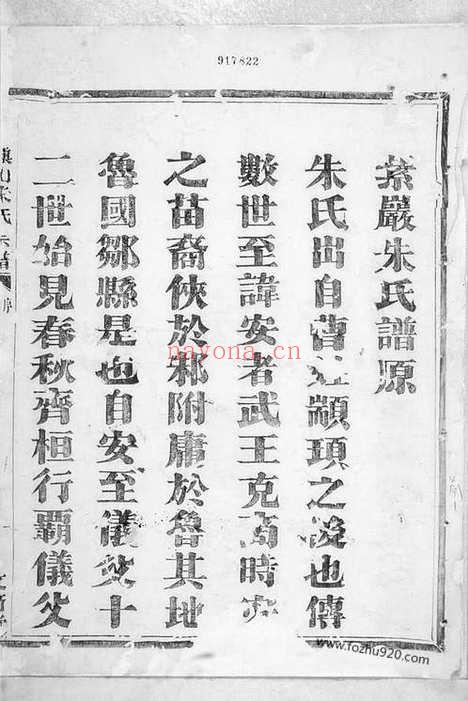 917822
紫巖朱氏譜原
朱氏出自曹顓頊之後也傳
數世至諱安者武王克商時
之苗裔俠於邾附庸於魯其地
魯國鄒縣是也自安至儀父十
二世始見春秋齊桓行覇儀父
朱氏宗譜
nayona.cn
www.fozhu920.com